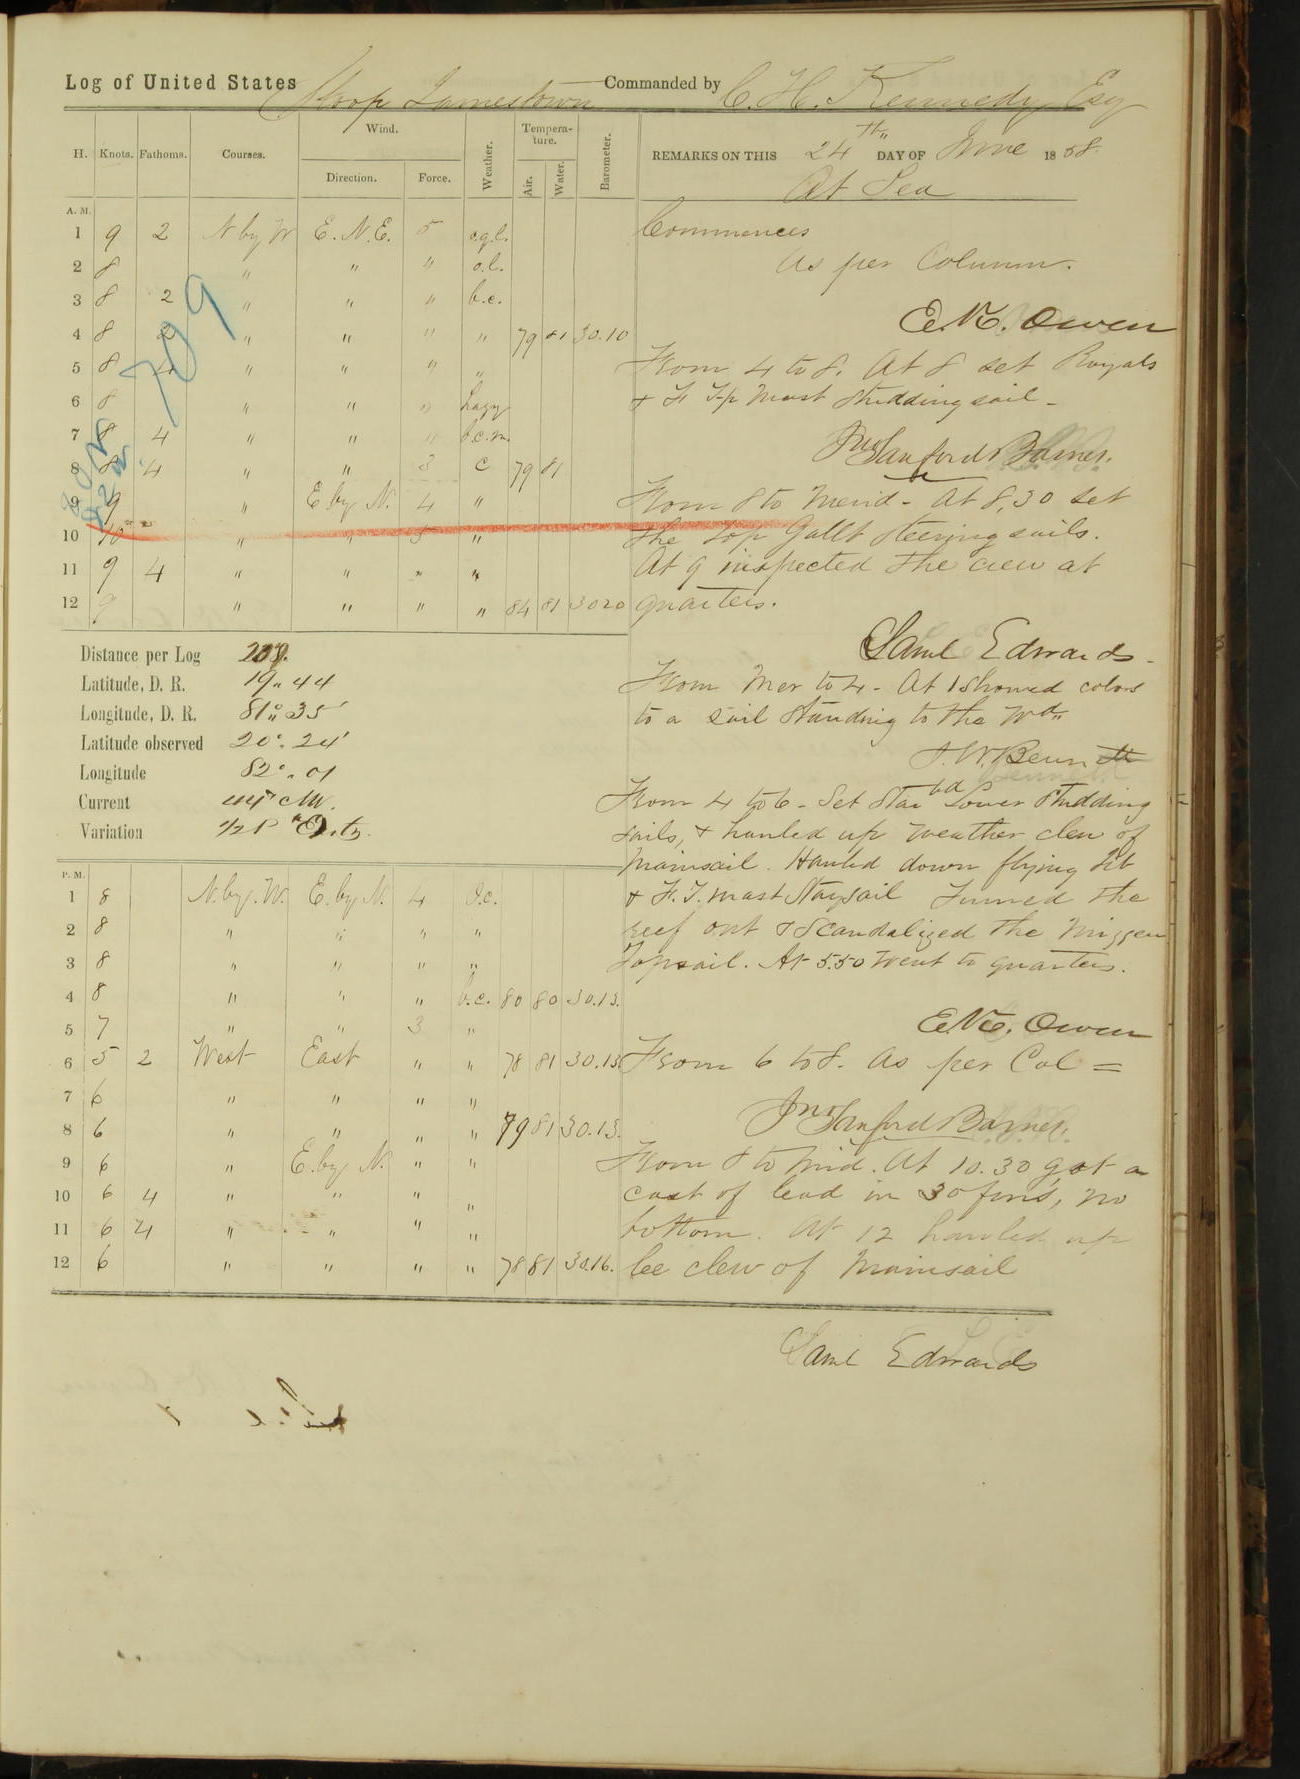 Log of United States Sloop Jamestown Commanded by C. H. Kennedy, Esq
REMARKS ON THIS 24th DAY OF June 1858.
At Sea
H. Knots. Fathoms. Courses. Wind. Direction. Force. Weather. Tempera-ture. Air. Water. Barometer.
A. M.
1 9 2 N by W E. N. E. 5
2 8 " " "
3 8 2 " " " b.c.
4 8 2 " " " " 79 81 30.10
5 8 4 " " " "
6 8 " " " hazy
7 8 4 " " " b.c.m.
8 8 4 " " 3 c 79 81
9 9 " E by N. 4 "
10 10 " " 5 "
11 9 4 " " " "
12 9 " " " " 84 81 30 20
709
Commences
As per Column.
Owen
From 4 to 8. At 8 set Royals
& F Top Mast Studdingsail -
Jno Sanford Barnes.
From 8 to Merid - At 8,30 set
the Top Gallt Steering sails.
At 9 inspected the crew at
quarters.
Saml Edwards -
From Mer to 4 - At 1 showed colors
to a sail standing to the Wd
J. W. Bennett
From 4 to 6 - Set Starbd Lower Studding
sails, & hauled up weather clew of
Mainsail. Hauled down flying Jib
& F. T. mast Staysail Turned the
reef out & Scandalized the Mizzen
Topsail. At 5.50 went to quarters.
Owen
From 6 to 8. As per Col =
Jno Sanford Barnes.
From 8 to Mid. At 10.30 got a
cast of lead in 30 fms, no
bottom. At 12 hauled up
lee clew of Mainsail
Saml Edwards
Distance per Log
Latitude, D. R. 19.. 44
Longitude, D. R. 81° 35'
Latitude observed 20°. 24'
Longitude 82°.. 01
Current
Variation 1/2 P
P. M.
1 8 N. by. W. E. by N. 4 o.c.
2 8 " " " "
3 8 " " " "
4 8 " " " b.c. 80 80 30.13.
5 7 " " 3 "
6 5 2 West East " " 78 81 30.13
7 6 " " " "
8 6 " " " " 79 81 30.13.
9 6 " E. by N. " "
10 6 4 " " " "
11 6 4 " " " "
12 6 " " " " 78 81 30.16.